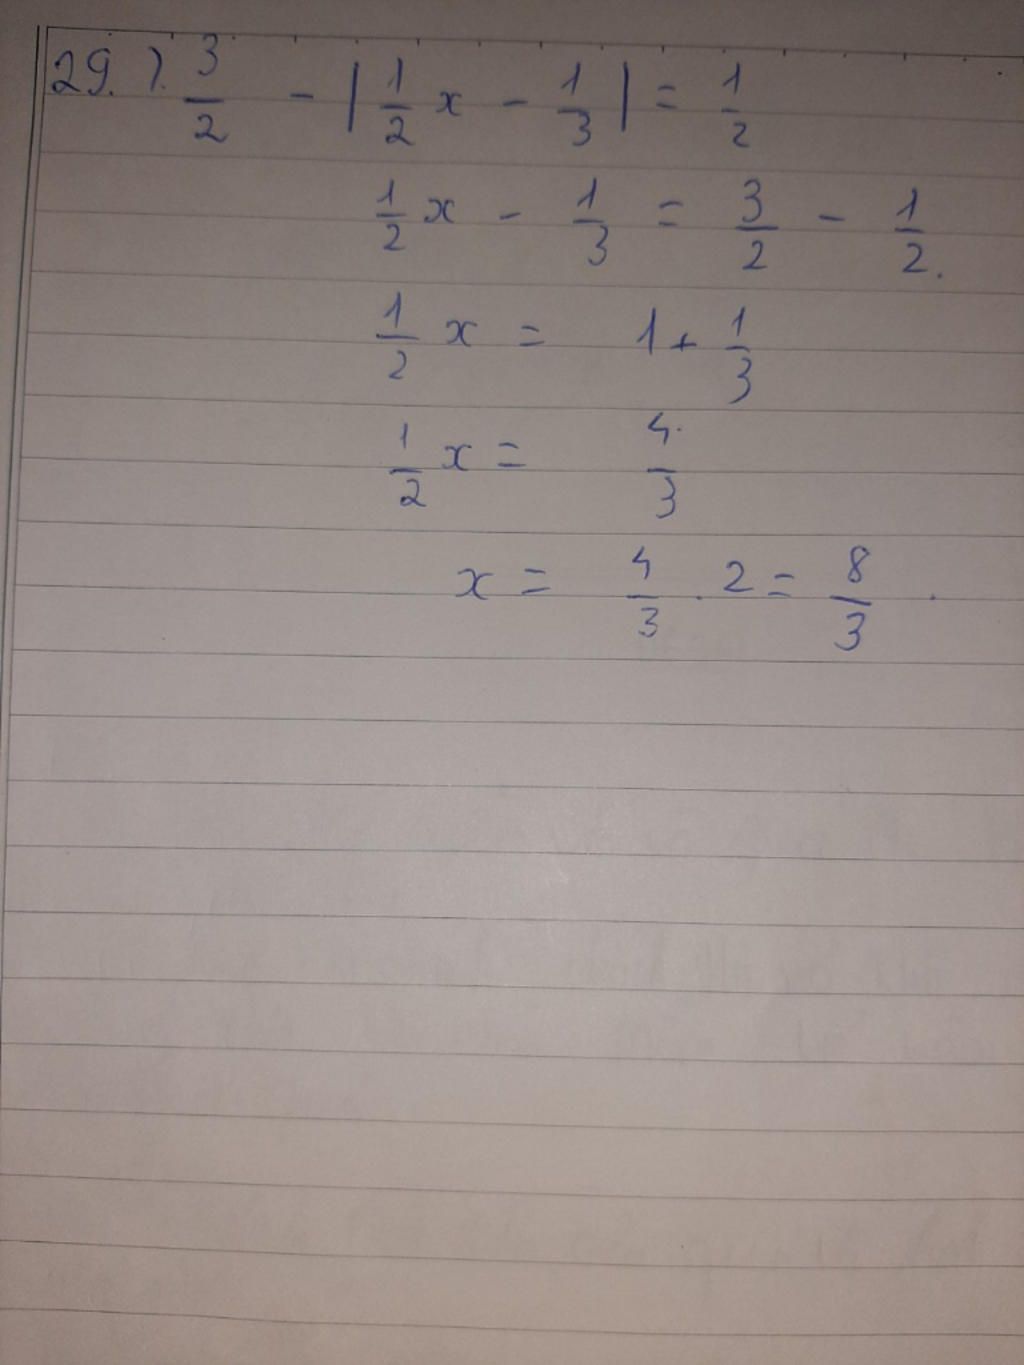 29. ). 3/2 - |1/2 x - 1/3| = 1/2
1/2 x - 1/3 = 3/2 - 1/2.
1/2 x = 1 + 1/3
1/2 x = 4/3
x = 4/3 . 2 = 8/3 .